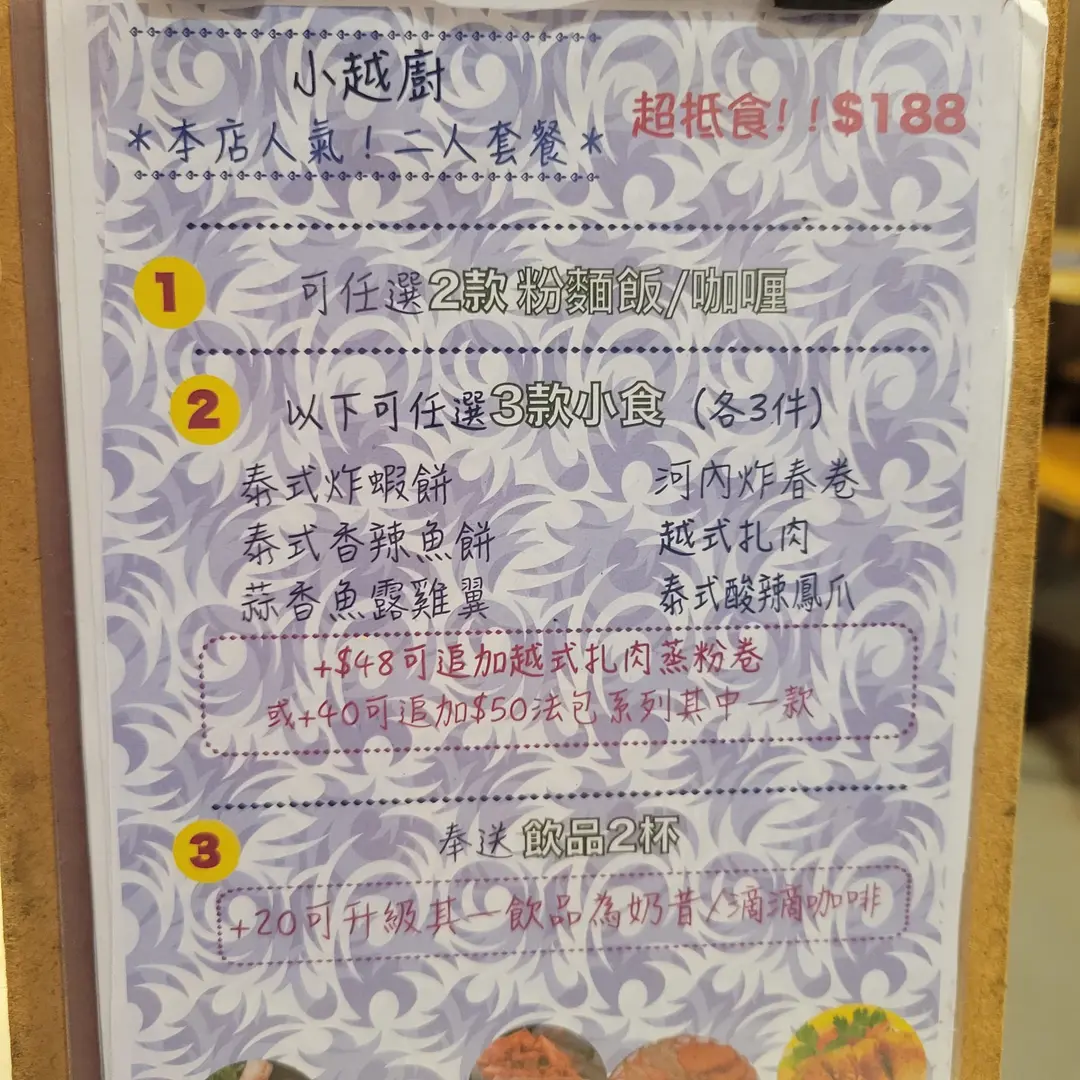 小越廚
*本店人氣！二人套餐*
超抵食！！$188
1 可任選2款 粉麵飯/咖喱
2 以下可任選3款小食（各3件）
泰式炸蝦餅 河內炸春卷
泰式香辣魚餅 越式扎肉
蒜香魚露雞翼 泰式酸辣鳳爪
+$48可追加越式扎肉蒸粉卷
或+40可追加$50法包系列其中一款
3 奉送 飲品2杯
+20可升級其一飲品為奶昔/滴滴咖啡